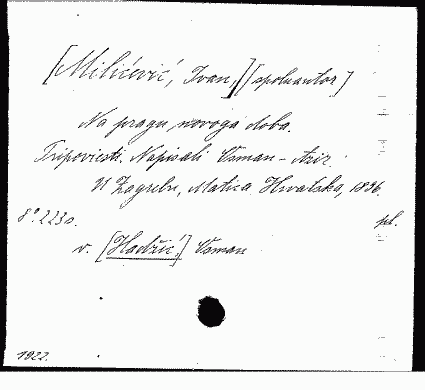 [Milićević, Ivan,] [spoluautor]
Na pragu novoga doba.
Pripoviesti. Napisali Osman-Aziz.
U Zagrebu, Matica Hrvatska, 1896.
8°. 223 s. pl.
v. [Hadžić,] Osman
1922.